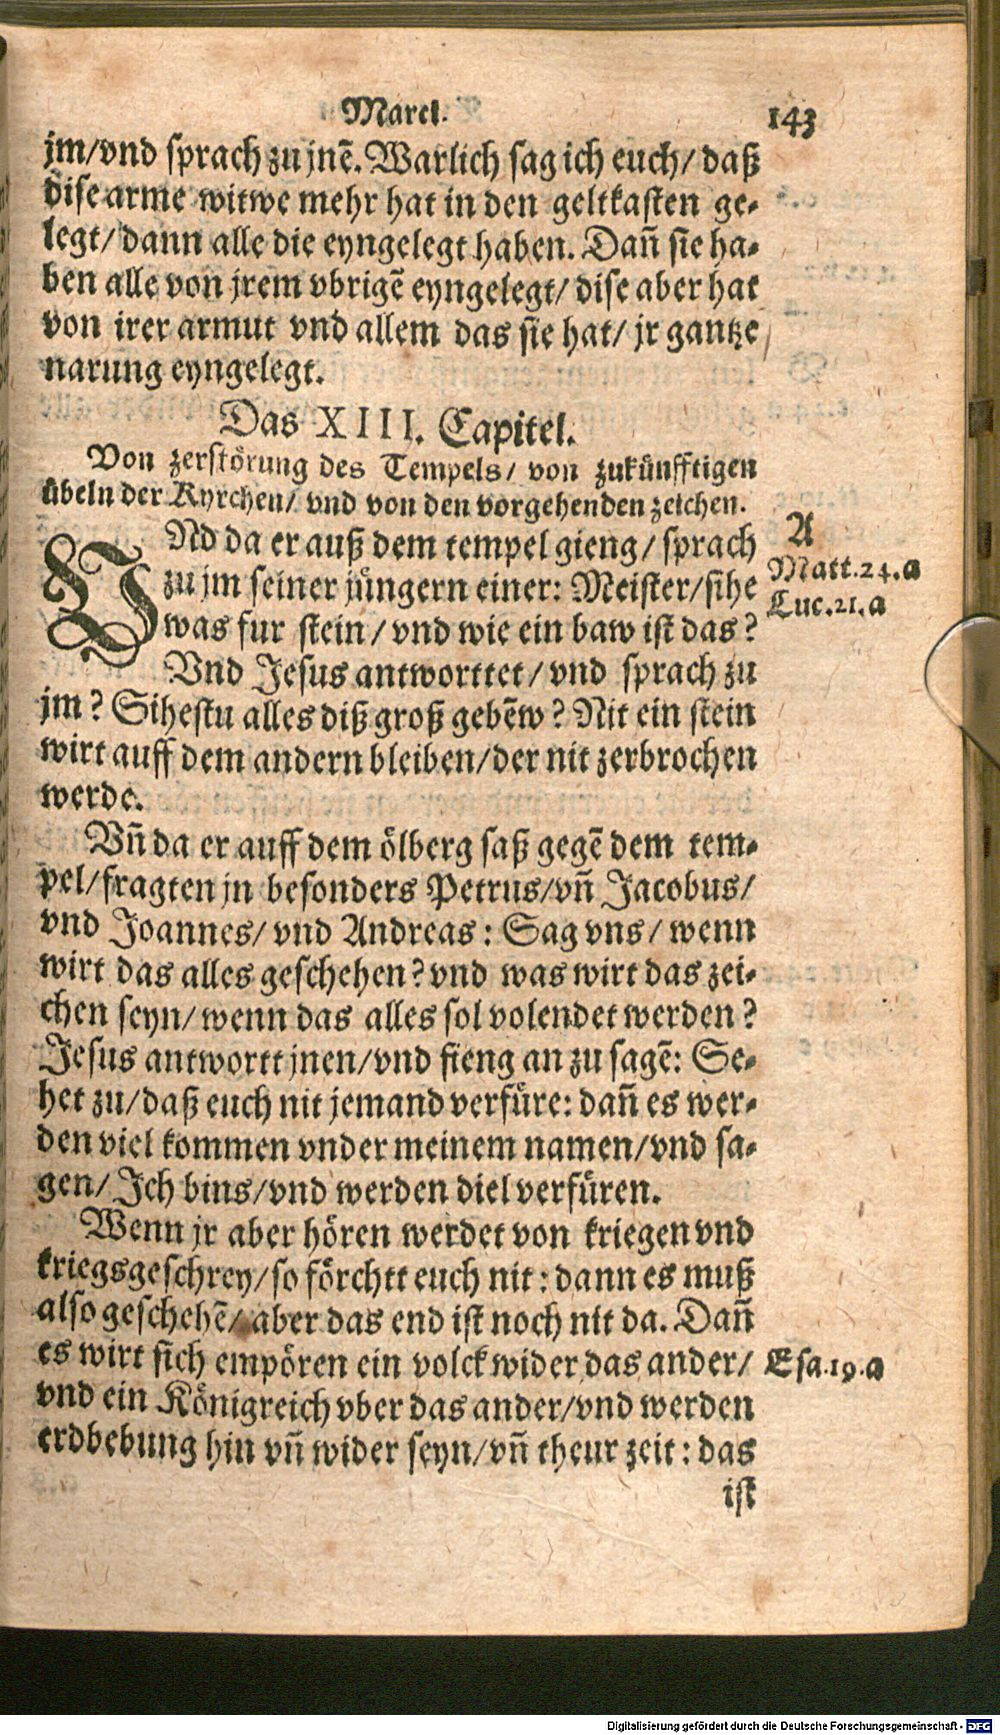 Marci. 143
jm/vnd sprach zu jnē. Warlich sag ich euch/ daß
dise arme witwe mehr hat in den geltkasten ge-
legt/ dann alle die eyngelegt haben. Dañ sie ha-
ben alle von jrem vbrigē eyngelegt/ dise aber hat
von irer armut vnd allem das sie hat/ jr gantze
narung eyngelegt.
Das XIII. Capitel.
Von zerstörung des Tempels/ von zukünfftigen
übeln der Kyrchen/ vnd von den vorgehenden zeichen.
VNd da er auß dem tempel gieng/ sprach
zu jm seiner jüngern einer: Meister/sihe
was fur stein/ vnd wie ein baw ist das?
Vnd Jesus antworttet/ vnd sprach zu
jm? Sihestu alles diß groß gebēw? Nit ein stein
wirt auff dem andern bleiben/der nit zerbrochen
werde.
A
Matt.24.a
Luc.21.a
Vñ da er auff dem ölberg saß gegē dem tem-
pel/fragten jn besonders Petrus/vñ Jacobus/
vnd Joannes/ vnd Andreas: Sag vns/ wenn
wirt das alles geschehen? vnd was wirt das zei-
chen seyn/ wenn das alles sol volendet werden?
Jesus antwortt jnen/vnd fieng an zu sagē: Se-
het zu/daß euch nit jemand verfüre: dañ es wer-
den viel kommen vnder meinem namen/vnd sa-
gen/ Ich bins/vnd werden diel verfüren.
Wenn jr aber hören werdet von kriegen vnd
kriegsgeschrey/so förchtt euch nit: dann es muß
also geschehē/ aber das end ist noch nit da. Dañ
es wirt sich empören ein volck wider das ander/
vnd ein Königreich vber das ander/vnd werden
erdbebung hin vñ wider seyn/vñ theur zeit: das
ist
Esa.19.a
Digitalisierung gefördert durch die Deutsche Forschungsgemeinschaft - DFG